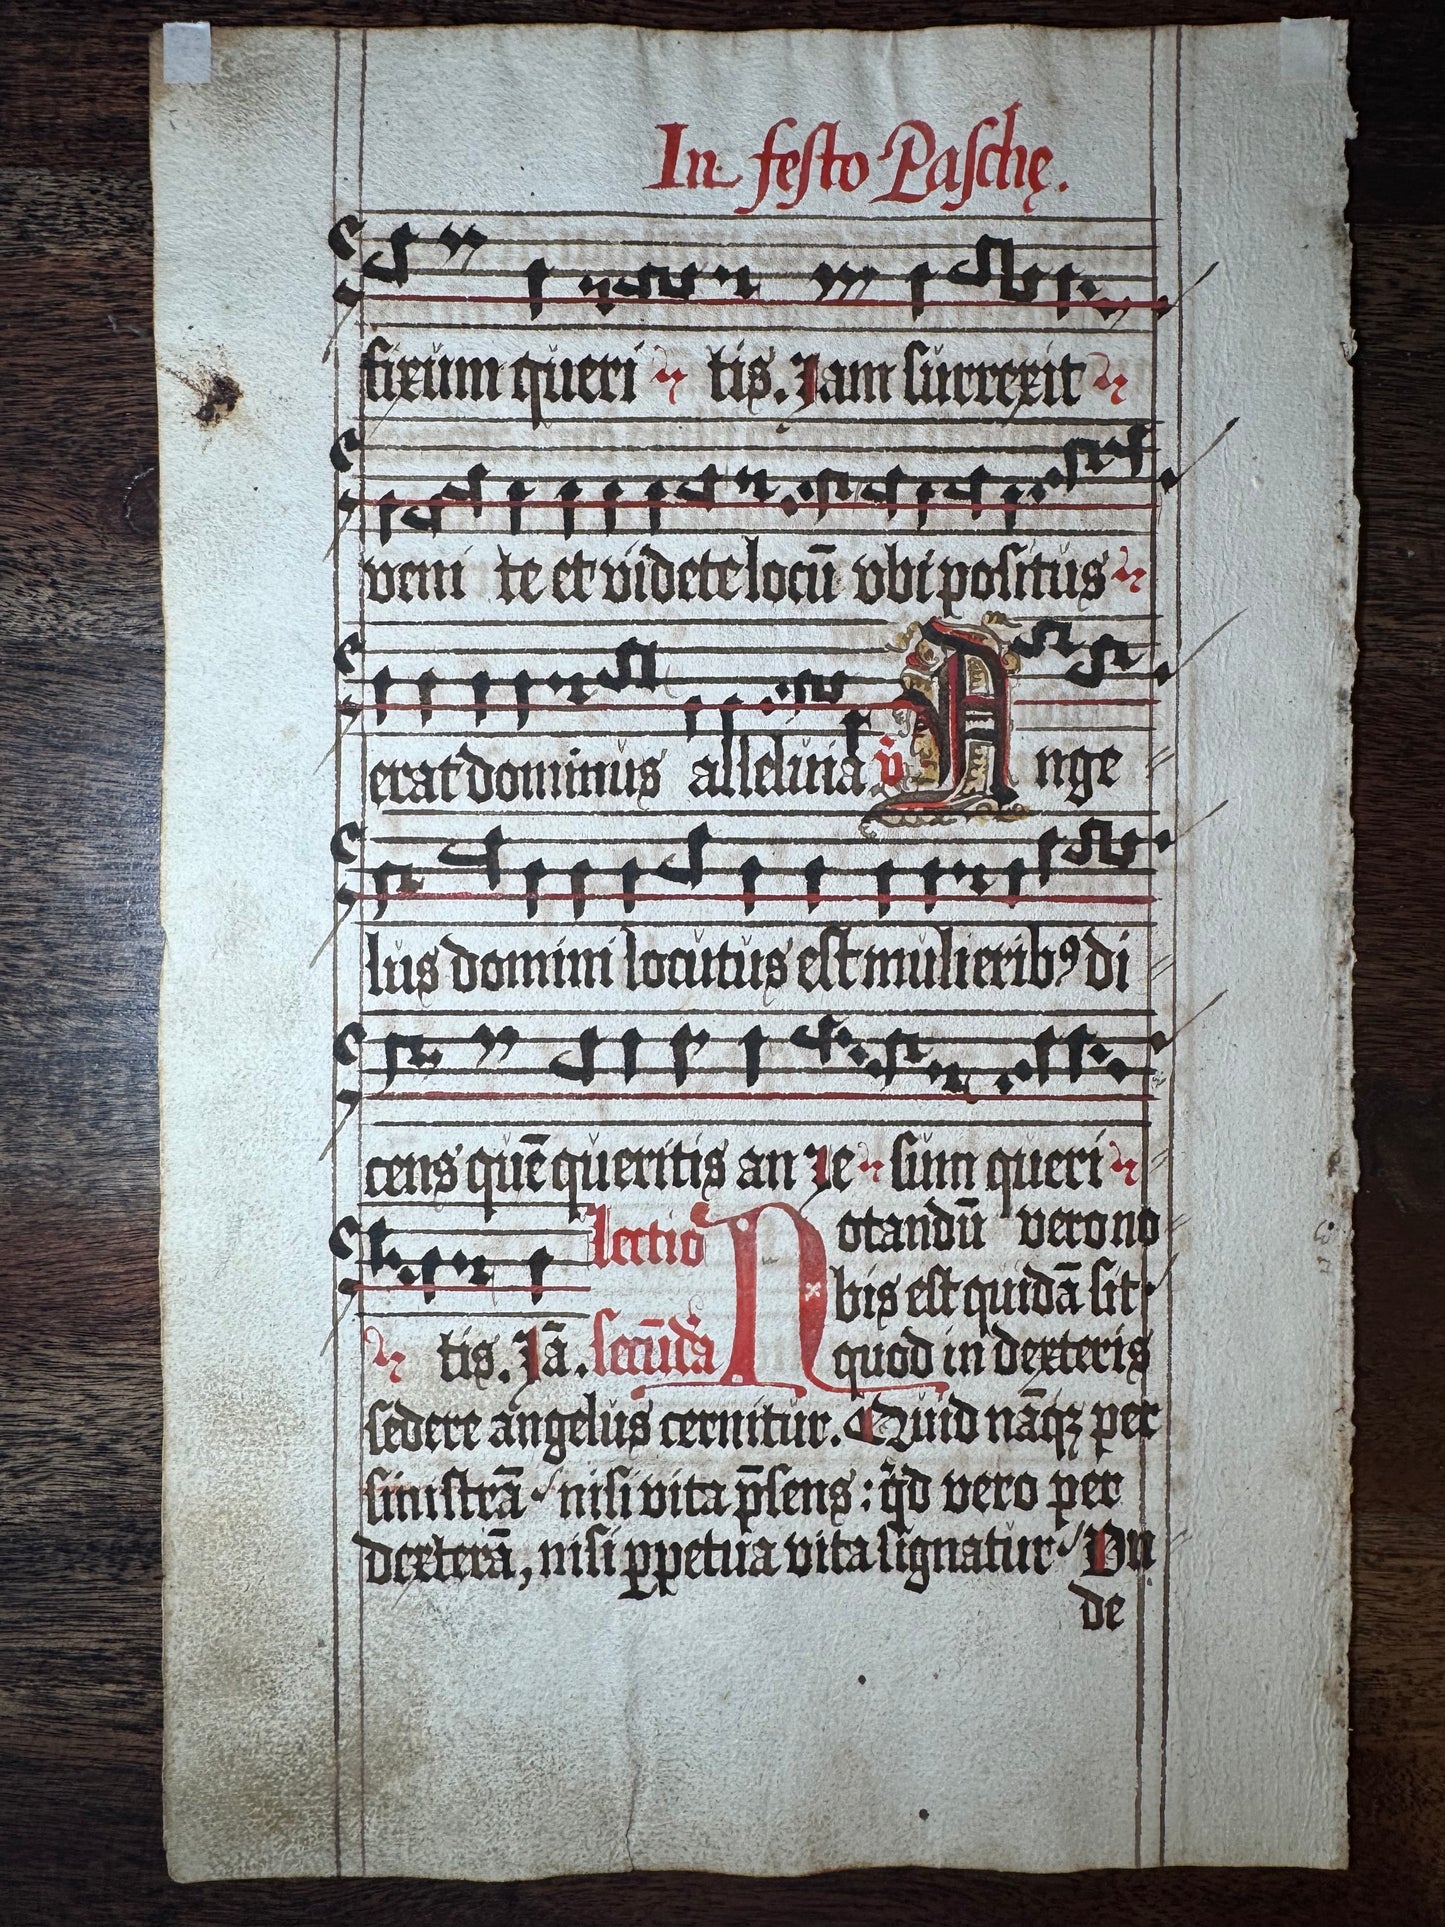 In festo Paschę.
fixum queri tis. Jam surrexit
veni te et videte locū vbi positus
erat dominus alleluia ℣ Ange
lus domini locutus est mulierib⁹ di
cens quē queritis an Je sum queri
tis. Jā. Lectio secūda Notandū vero no
bis est quidā sit
quod in dexteris
sedere angelus cernitur. Quid nāqꝫ per
sinistrā nisi vita p̄sens: qd vero per
dexterā, nisi ꝑpetua vita signatur Vn
de